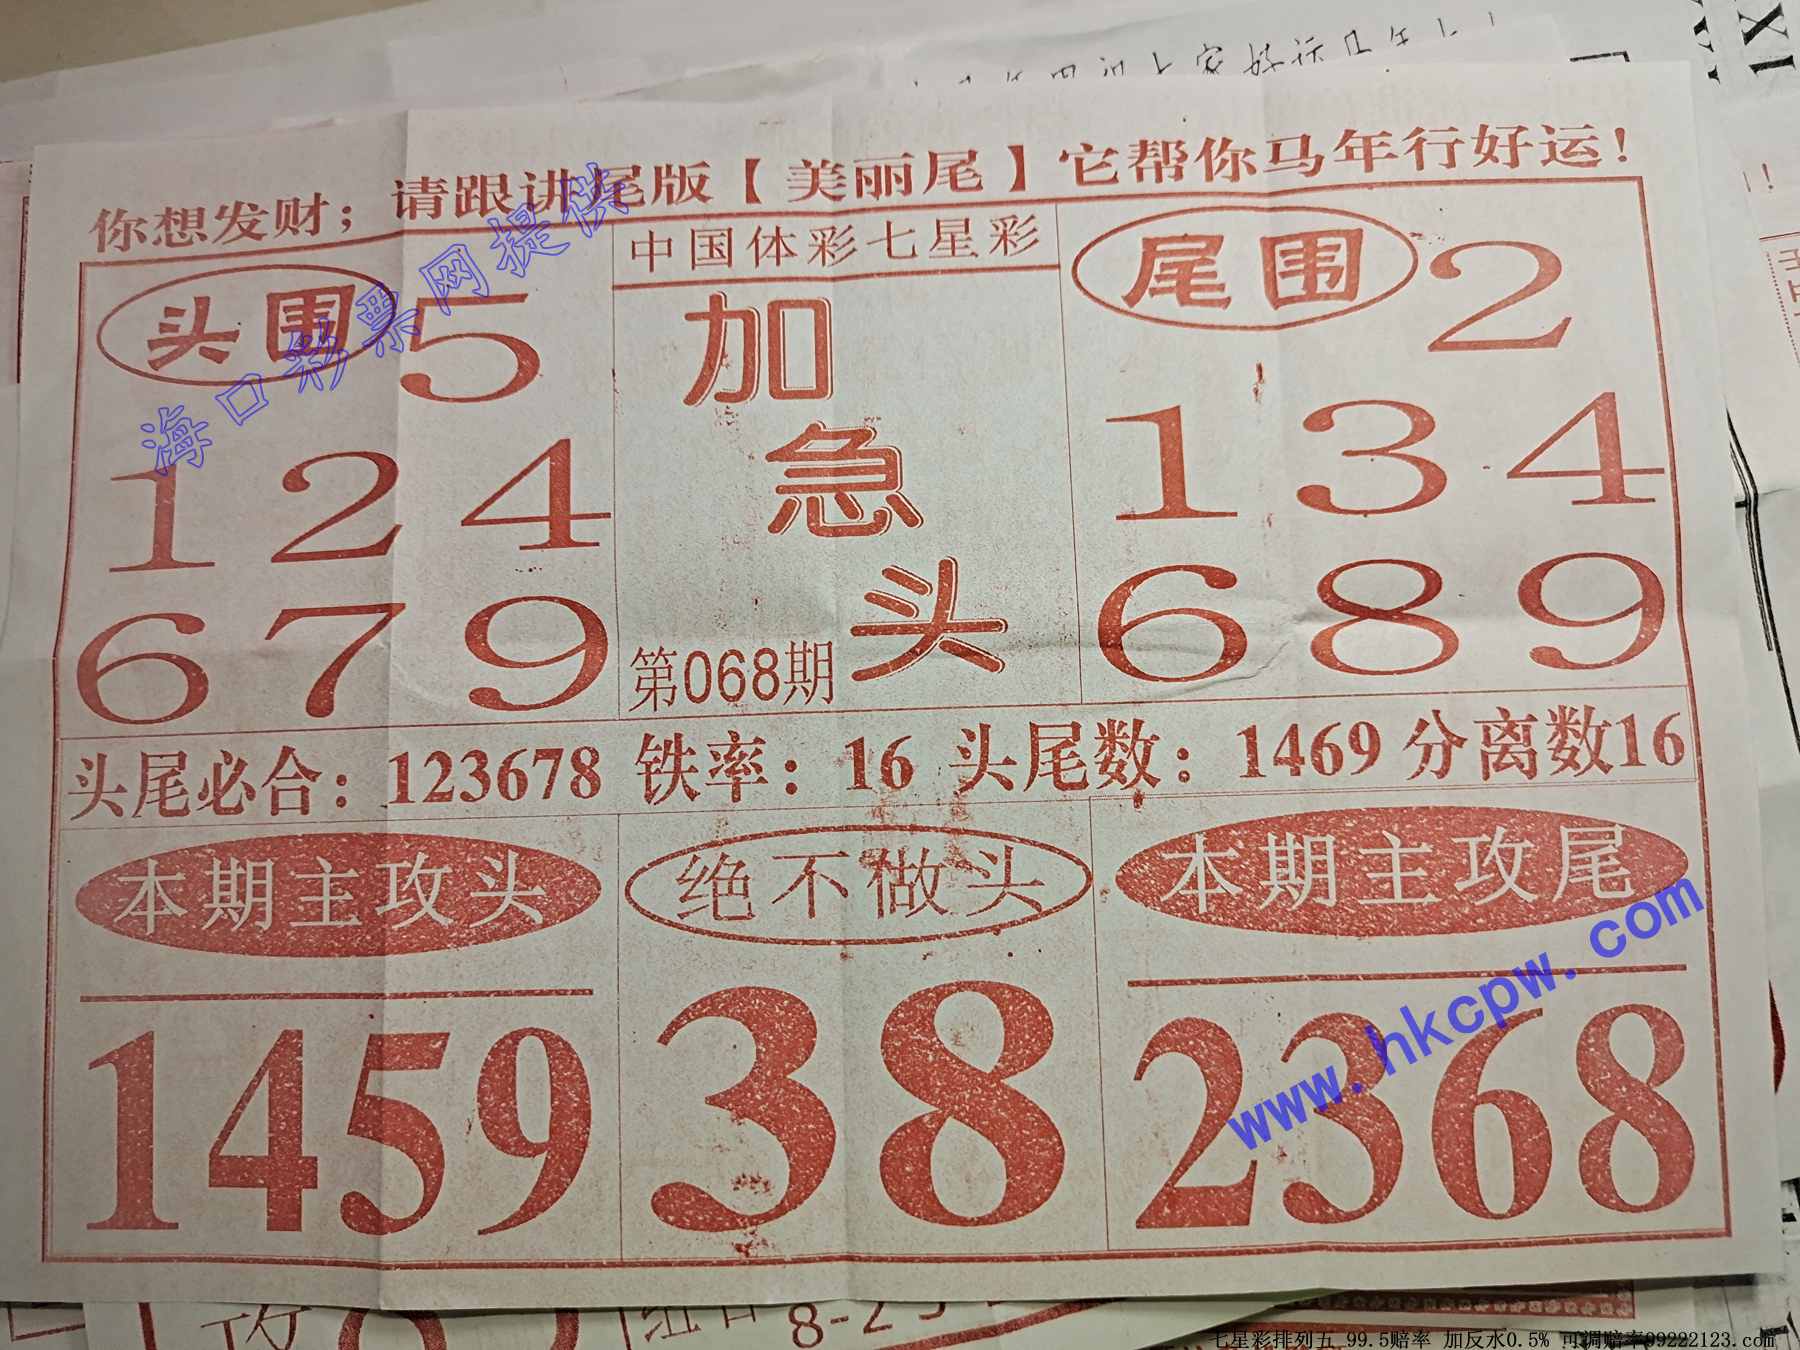 你想发财；请跟讲尾版【美丽尾】它帮你马年行好运！
头围 5
1 2 4
6 7 9
中国体彩七星彩
加
急
头
第068期
尾围 2
1 3 4
6 8 9
头尾必合：123678 铁率：16 头尾数：1469 分离数16
本期主攻头
1459
绝不做头
38
本期主攻尾
2368
海口彩票网提供
www.hkcpw.com
8-2
七星彩排列五 99.5赔率 加反水0.5% 可调赔率99222123.com